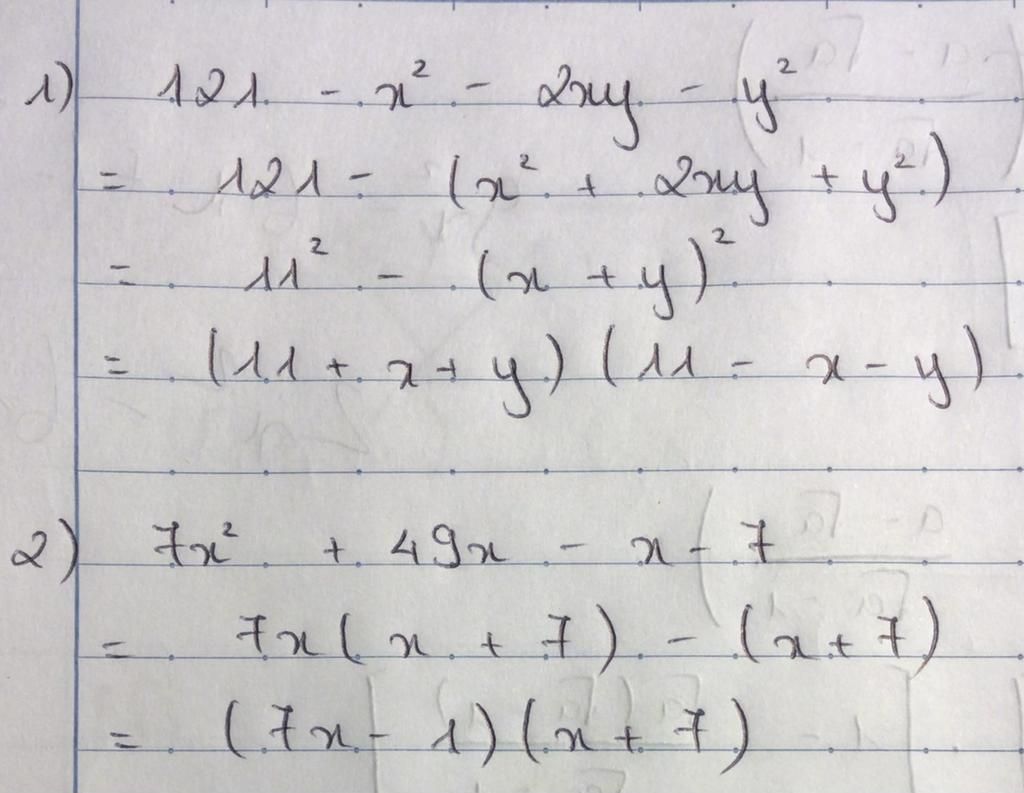 1) 121 - x² - 2xy - y²
= 121 - (x² + 2xy + y²)
= 11² - (x + y)²
= (11 + x + y) (11 - x - y)
2) 7x² + 49x - x - 7
= 7x(x + 7) - (x + 7)
= (7x - 1)(x + 7)